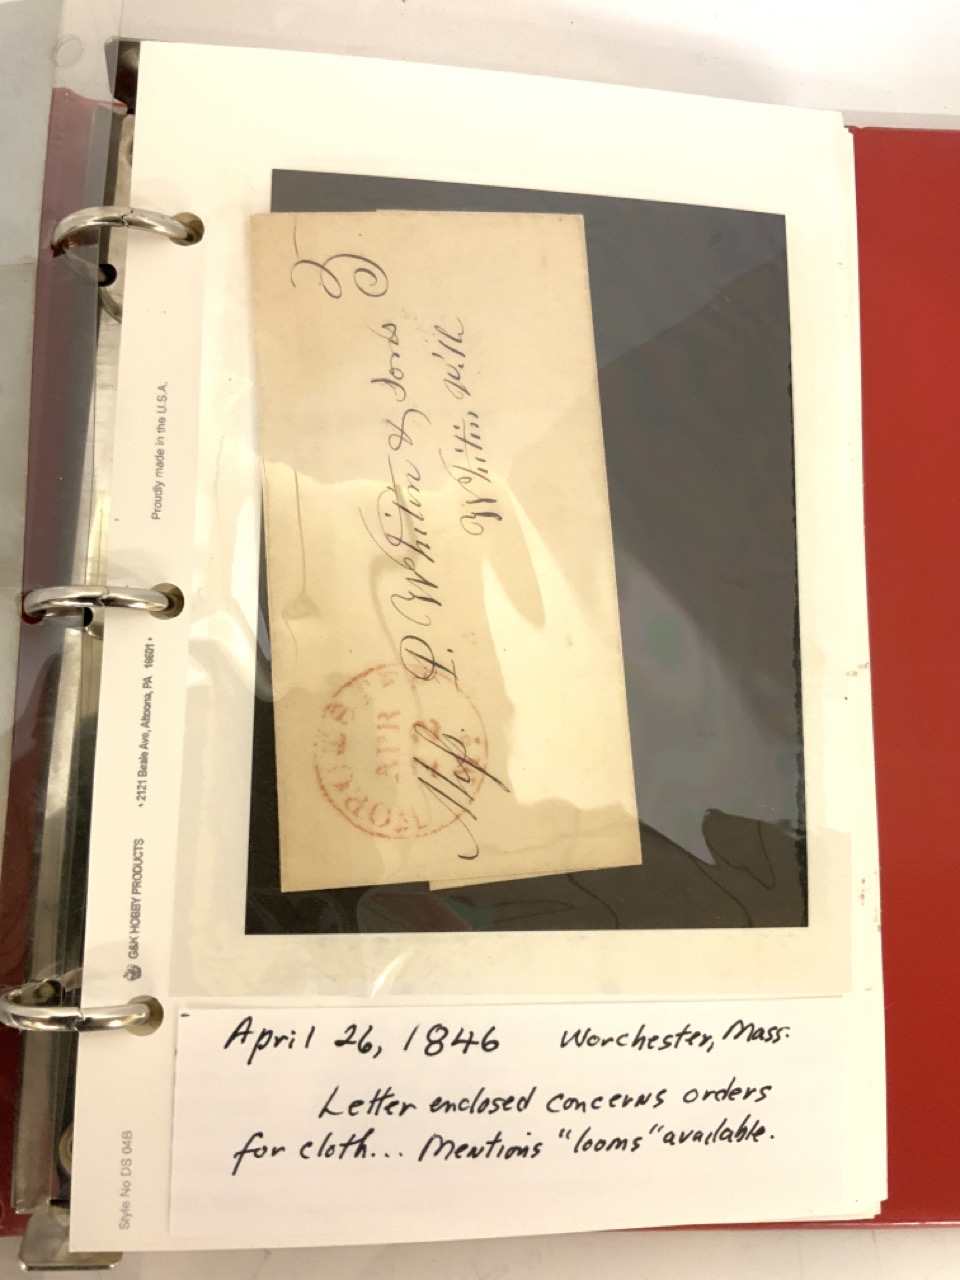 5
Messrs. P. Whitin & Sons
Whitin Vill
WORCESTER
APR
Proudly made in the U.S.A.
• 2121 Beale Ave, Altoona, PA 16601 •
G&K HOBBY PRODUCTS
Style No DS 04B
April 26, 1846 Worchester, Mass.
Letter enclosed concerns orders
for cloth... Mentions "looms" available.